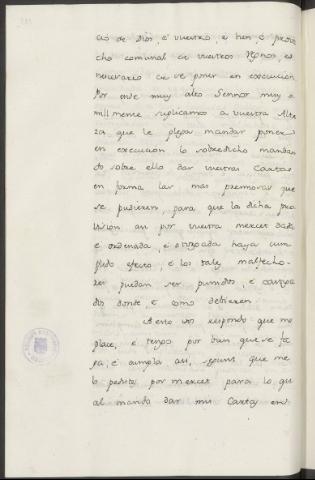 cio de Dios, è vuestro, e bien, è prove
cho comunal de vuestros Regnos es
necesario de se poner en execucion
Por ende muy alto Sennor muy o
milmente suplicamos a vuestra Alte
za, que le plega mandar poner
en execucion lo sobredicho mandan
do sobre ello dar vuestras Cartas
en forma las mas premiosas que
se pudieren, para que la dicha pro
vision asi por vuestra merced dada
è ordenada, è otorgada haya cum
plido efecto, è los tales malfecho-
res puedan ser punidos, e castiga
dos donde è como debieren
A esto vos respondo que me
place, e tengo por bien que se fa
ga, è cumpla asi, segunt que me
lo pedistes por merced para lo qual
mando dar mis Cartas en